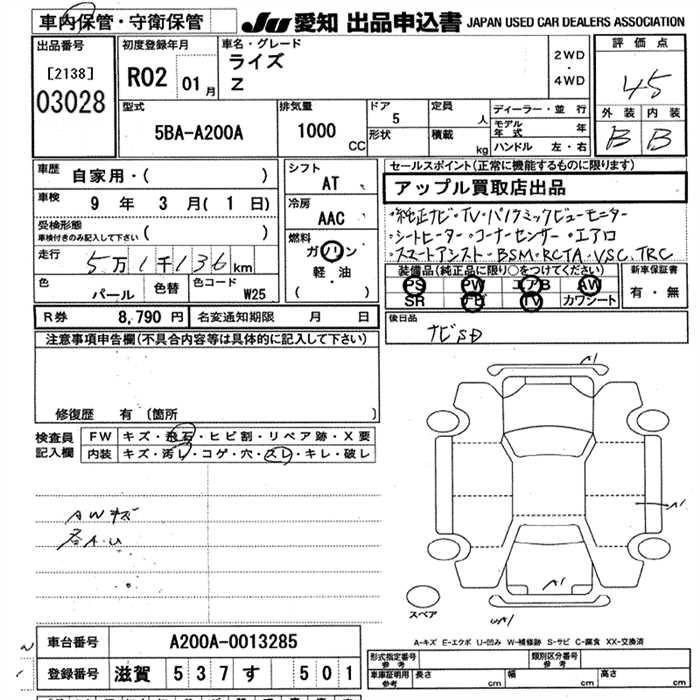 車内保管・守衛保管
JU 愛知 出品申込書 JAPAN USED CAR DEALERS ASSOCIATION
出品番号
[2138]
03028
初度登録年月
R02 01月
車名・グレード
ライズ
Z
2WD
・
4WD
評価点
4.5
外装 内装
B B
型式
5BA-A200A
排気量
1000 CC
ドア
5
形状
定員
人
積載
kg
ディーラー・並行
モデル年式 年
ハンドル 左・右
車歴
自家用・( )
車検
9年 3月(1日)
受検形態
車検付きのみ記入して下さい ( )
走行
5万1千136km
色
パール
色替
色コード
W25
シフト
AT
冷房
AAC
燃料
ガソリン
軽・油
( )
セールスポイント(正常に機能するものに限ります)
アップル買取店出品
・純正ナビ・TV・パノラミックビューモニター
・シートヒーター・コーナーセンサー・エアロ
・スマートアシスト・BSM・RCTA・VSC、TRC
装備品(純正品に限り○をつけてください)
PS PW エアB AW
SR ナビ TV カワシート
新車保証書
有・無
R券 8,790円 名変通知期限 月 日
後日品
ナビSD
注意事項申告欄(不具合内容等は具体的に記入して下さい)
修復歴 有 〔箇所
検査員記入欄
FW キズ・飛石・ヒビ割・リペア跡・X要
内装 キズ・汚レ・コゲ・穴・スレ・キレ・破レ
AWキズ
各A.U
A1
A1
A1
WA1
スペア
A-キズ E-エクボ U-凹み W-補修跡 S-サビ C-腐食 XX-交換済
車台番号 A200A-0013285
登録番号 滋賀 537 す 501
形式指定番号 参考
類別区分番号 参考
車庫証明用 参考 長さ cm 幅 cm 高さ cm